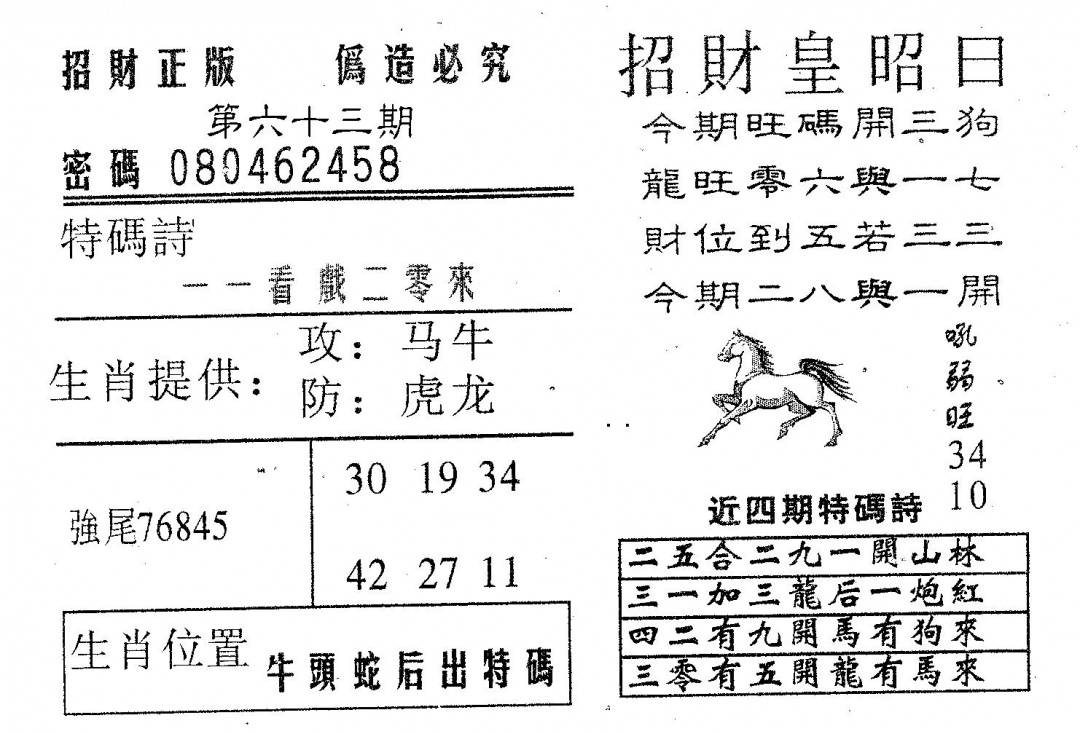 招財正版 偽造必究
第六十三期
密碼 080462458
特碼詩
一一看戲二零來
生肖提供：
攻：马牛
防：虎龙
強尾76845
30 19 34
42 27 11
生肖位置 牛頭蛇后出特碼
招財皇昭曰
今期旺碼開三狗
龍旺零六與一七
財位到五若三三
今期二八與一開
吼弱旺
34
10
近四期特碼詩
二五合二九一開山林
三一加三龍后一炮紅
四二有九開馬有狗來
三零有五開龍有馬來